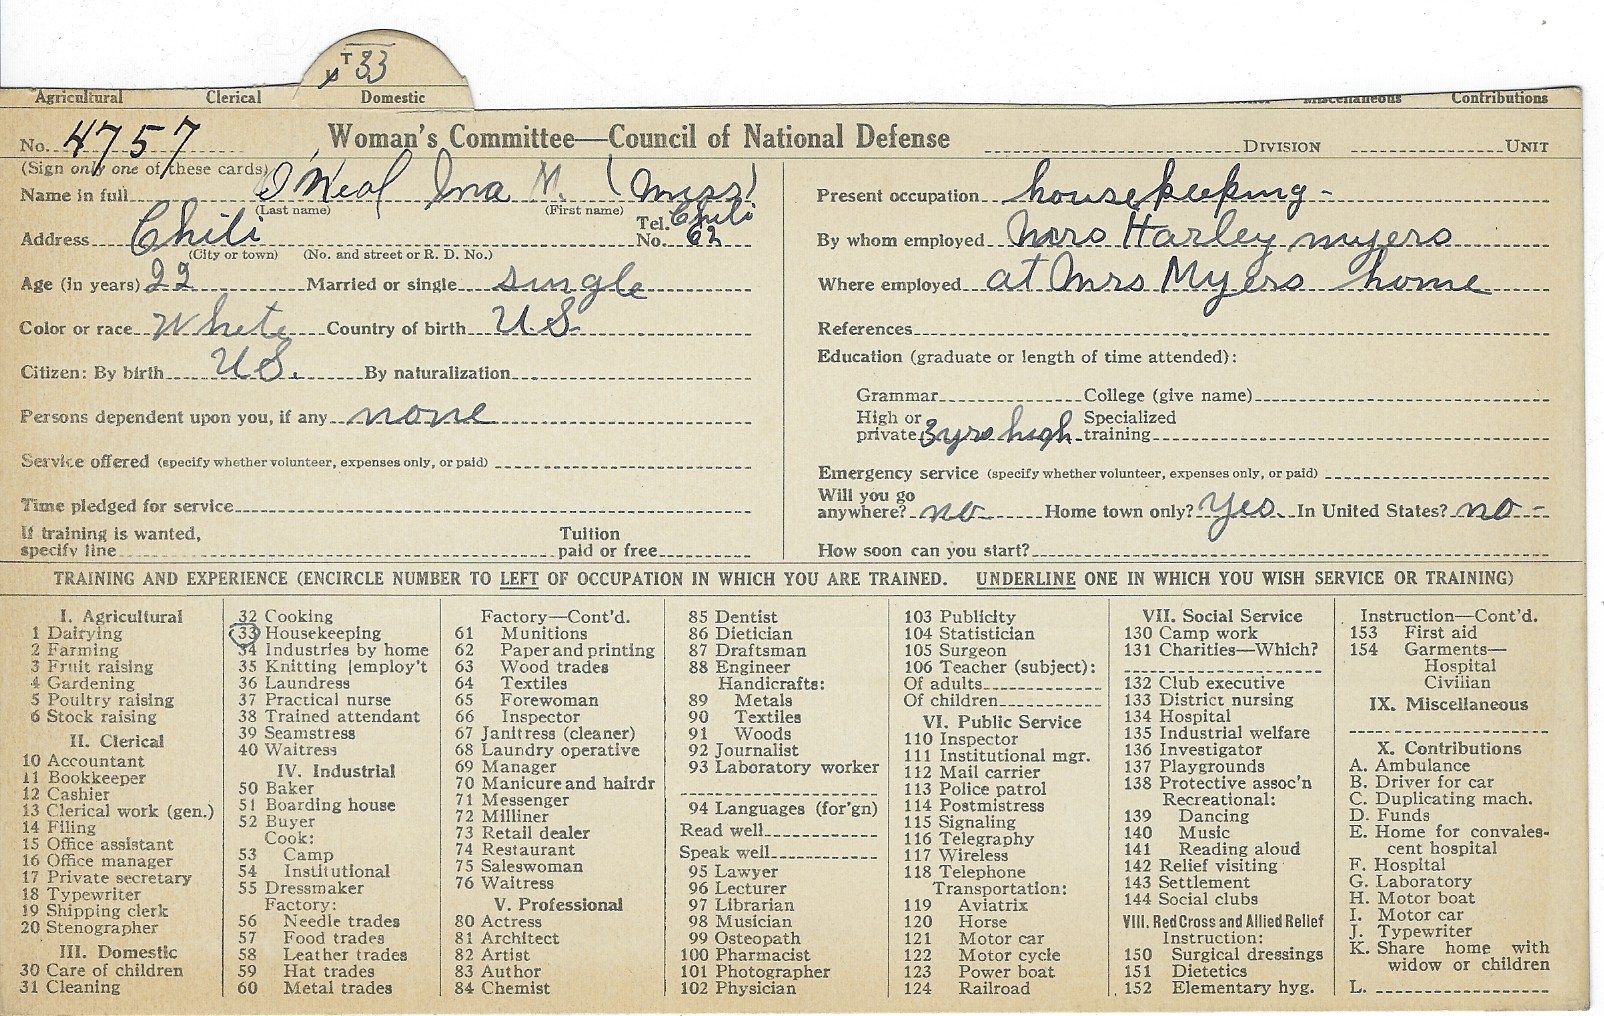 T 33
Agricultural Clerical Domestic Miscellaneous Contributions
No. 4757 Woman's Committee—Council of National Defense DIVISION UNIT
(Sign only one of these cards)
Name in full O'Neal Ina M. (Miss)
(Last name) (First name)
Address Chili Tel. No. Chili 62
(City or town) (No. and street or R. D. No.)
Age (in years) 22 Married or single single
Color or race White Country of birth U.S.
Citizen: By birth U.S. By naturalization
Persons dependent upon you, if any none
Service offered (specify whether volunteer, expenses only, or paid)
Time pledged for service
If training is wanted, specify line Tuition paid or free
Present occupation housekeeping -
By whom employed Mrs Harley myers
Where employed at Mrs Myers home
References
Education (graduate or length of time attended):
Grammar College (give name)
High or private 3 yrs high Specialized training
Emergency service (specify whether volunteer, expenses only, or paid)
Will you go anywhere? no Home town only? Yes. In United States? no -
How soon can you start?
TRAINING AND EXPERIENCE (ENCIRCLE NUMBER TO LEFT OF OCCUPATION IN WHICH YOU ARE TRAINED. UNDERLINE ONE IN WHICH YOU WISH SERVICE OR TRAINING)
I. Agricultural
1 Dairying
2 Farming
3 Fruit raising
4 Gardening
5 Poultry raising
6 Stock raising
II. Clerical
10 Accountant
11 Bookkeeper
12 Cashier
13 Clerical work (gen.)
14 Filing
15 Office assistant
16 Office manager
17 Private secretary
18 Typewriter
19 Shipping clerk
20 Stenographer
III. Domestic
30 Care of children
31 Cleaning
32 Cooking
33 Housekeeping
34 Industries by home
35 Knitting [employ't
36 Laundress
37 Practical nurse
38 Trained attendant
39 Seamstress
40 Waitress
IV. Industrial
50 Baker
51 Boarding house
52 Buyer
Cook:
53 Camp
54 Institutional
55 Dressmaker
Factory:
56 Needle trades
57 Food trades
58 Leather trades
59 Hat trades
60 Metal trades
Factory—Cont'd.
61 Munitions
62 Paper and printing
63 Wood trades
64 Textiles
65 Forewoman
66 Inspector
67 Janitress (cleaner)
68 Laundry operative
69 Manager
70 Manicure and hairdr
71 Messenger
72 Milliner
73 Retail dealer
74 Restaurant
75 Saleswoman
76 Waitress
V. Professional
80 Actress
81 Architect
82 Artist
83 Author
84 Chemist
85 Dentist
86 Dietician
87 Draftsman
88 Engineer
Handicrafts:
89 Metals
90 Textiles
91 Woods
92 Journalist
93 Laboratory worker
94 Languages (for'gn)
Read well
Speak well
95 Lawyer
96 Lecturer
97 Librarian
98 Musician
99 Osteopath
100 Pharmacist
101 Photographer
102 Physician
103 Publicity
104 Statistician
105 Surgeon
106 Teacher (subject):
Of adults
Of children
VI. Public Service
110 Inspector
111 Institutional mgr.
112 Mail carrier
113 Police patrol
114 Postmistress
115 Signaling
116 Telegraphy
117 Wireless
118 Telephone
Transportation:
119 Aviatrix
120 Horse
121 Motor car
122 Motor cycle
123 Power boat
124 Railroad
VII. Social Service
130 Camp work
131 Charities—Which?
132 Club executive
133 District nursing
134 Hospital
135 Industrial welfare
136 Investigator
137 Playgrounds
138 Protective assoc'n
Recreational:
139 Dancing
140 Music
141 Reading aloud
142 Relief visiting
143 Settlement
144 Social clubs
VIII. Red Cross and Allied Relief
Instruction:
150 Surgical dressings
151 Dietetics
152 Elementary hyg.
Instruction—Cont'd.
153 First aid
154 Garments—
Hospital
Civilian
IX. Miscellaneous
X. Contributions
A. Ambulance
B. Driver for car
C. Duplicating mach.
D. Funds
E. Home for convales-
cent hospital
F. Hospital
G. Laboratory
H. Motor boat
I. Motor car
J. Typewriter
K. Share home with
widow or children
L.